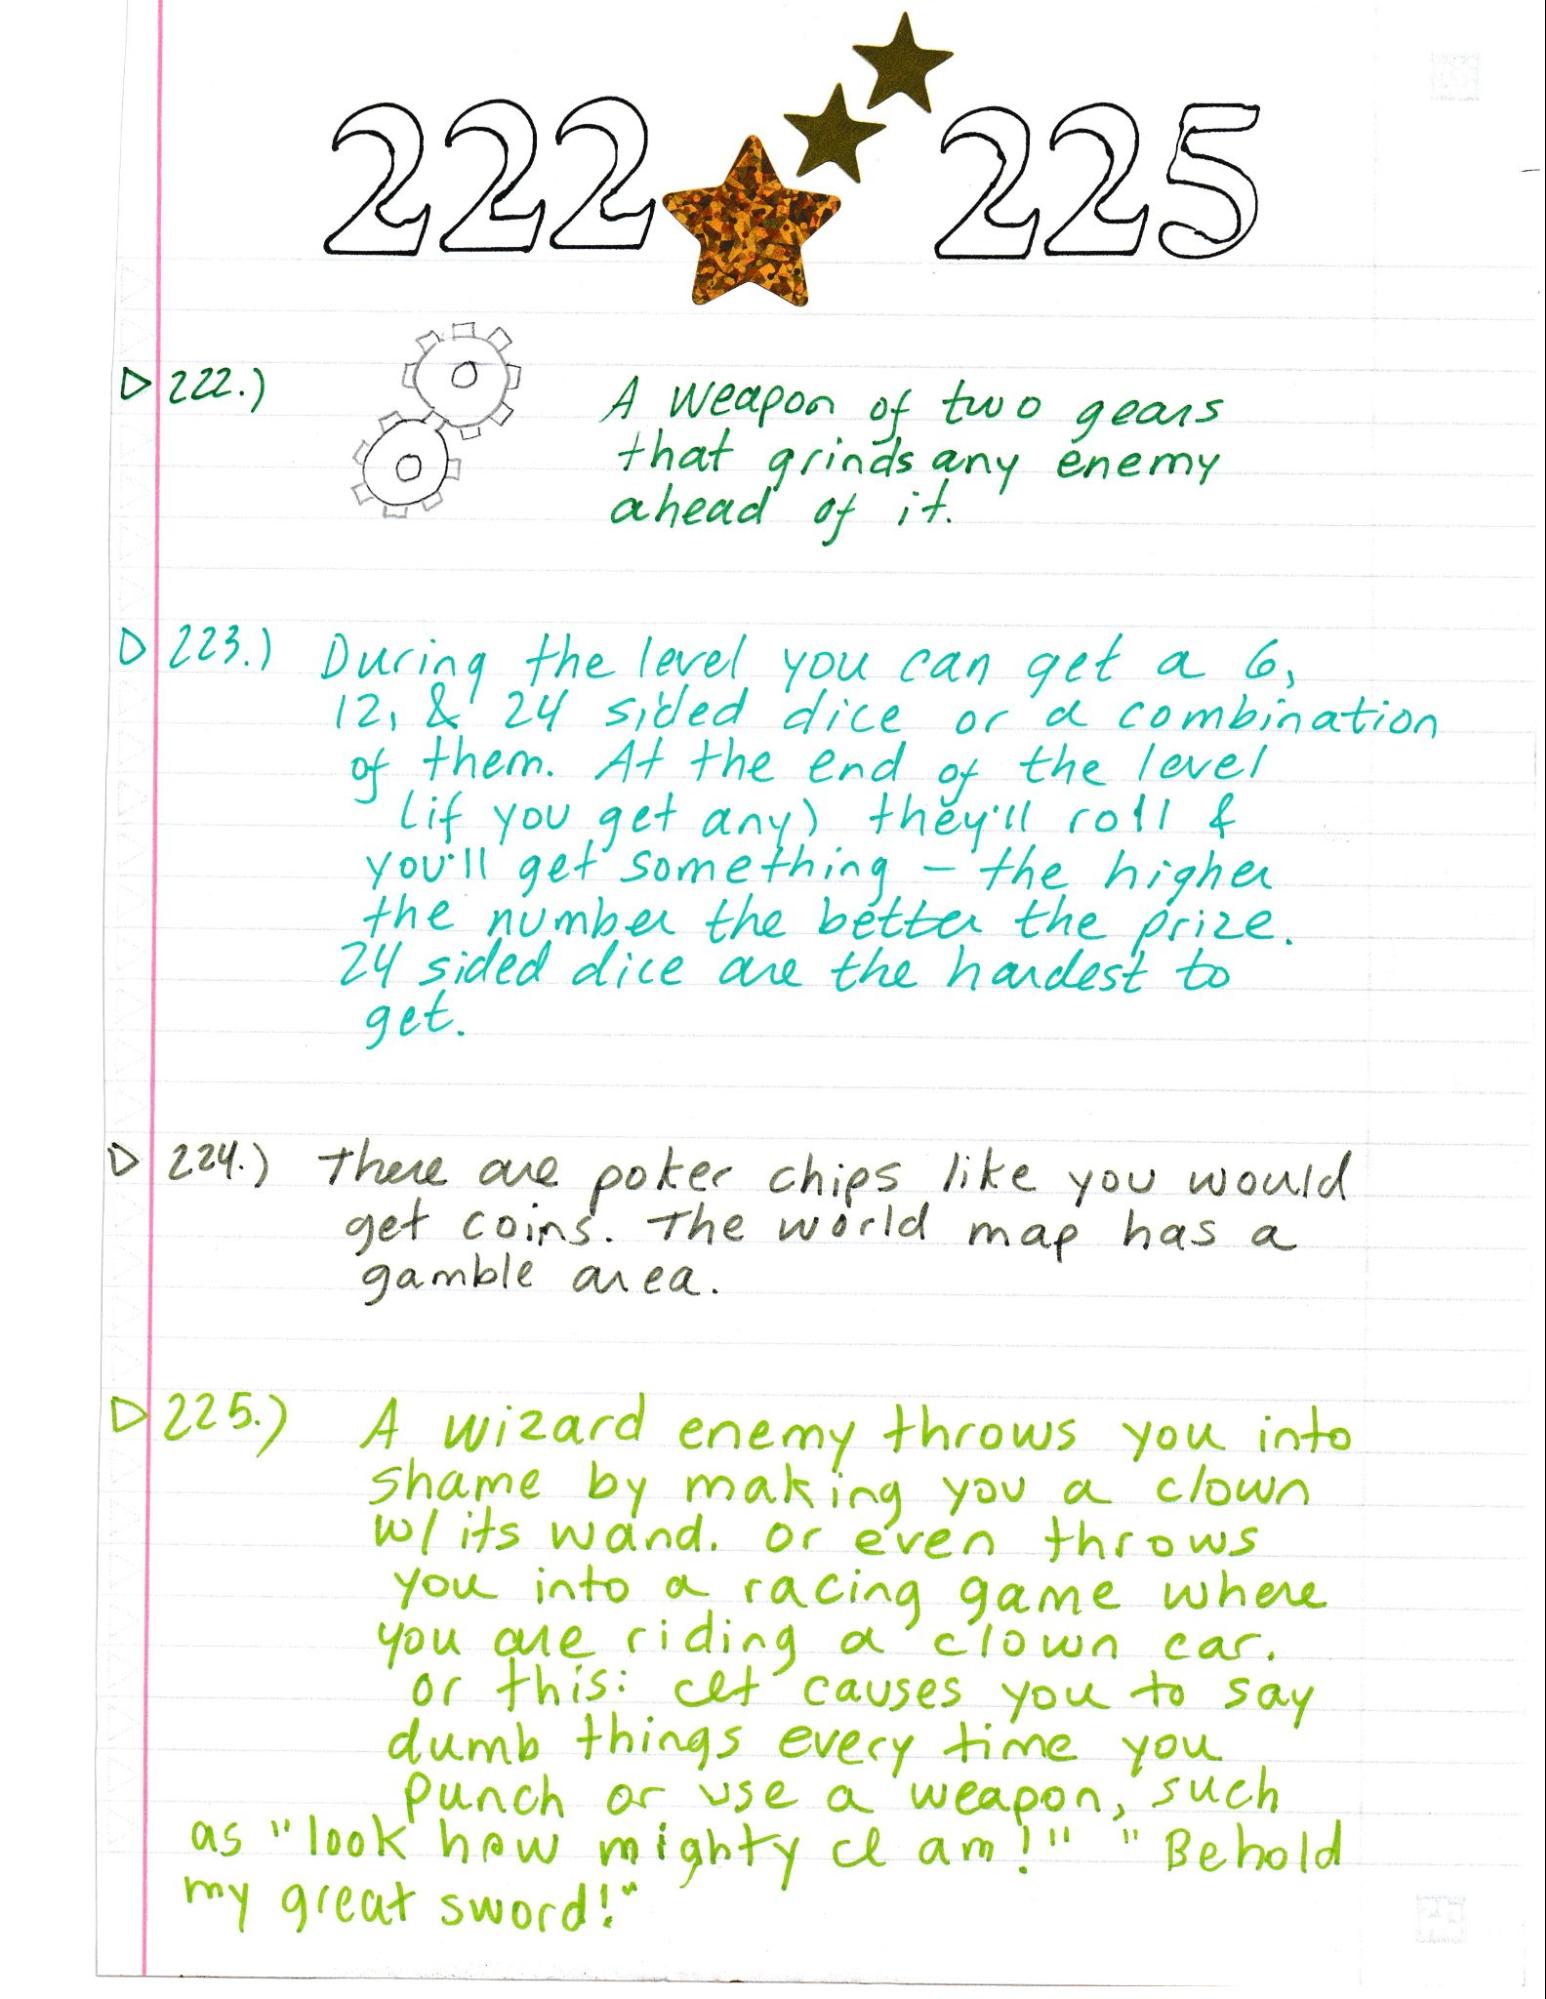 222 225
222.) A weapon of two gears
that grinds any enemy
ahead of it.
223.) During the level you can get a 6,
12, & 24 sided dice or a combination
of them. At the end of the level
(if you get any) they'll roll &
you'll get something - the higher
the number the better the prize.
24 sided dice are the hardest to
get.
224.) There are poker chips like you would
get coins. The world map has a
gamble area.
225.) A wizard enemy throws you into
shame by making you a clown
w/ its wand. Or even throws
you into a racing game where
you are riding a clown car.
Or this: It causes you to say
dumb things every time you
punch or use a weapon, such
as "look how mighty I am!" "Behold
my great sword!"